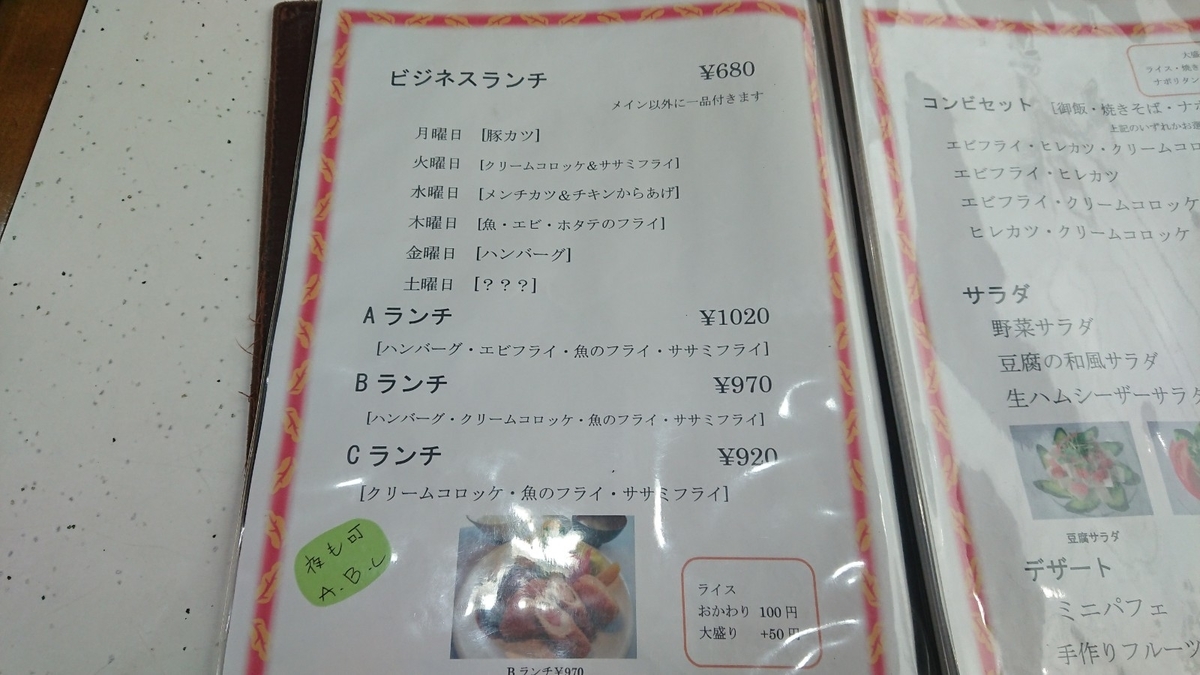 ビジネスランチ ¥680
メイン以外に一品付きます
月曜日 [豚カツ]
火曜日 [クリームコロッケ&ササミフライ]
水曜日 [メンチカツ&チキンからあげ]
木曜日 [魚・エビ・ホタテのフライ]
金曜日 [ハンバーグ]
土曜日 [???]
Aランチ ¥1020
[ハンバーグ・エビフライ・魚のフライ・ササミフライ]
Bランチ ¥970
[ハンバーグ・クリームコロッケ・魚のフライ・ササミフライ]
Cランチ ¥920
[クリームコロッケ・魚のフライ・ササミフライ]
夜も可
A.B.C
ライス
おかわり 100円
大盛り +50円
Bランチ¥970
大盛
ライス・焼き
ナポリタン
コンビセット [御飯・焼きそば・ナポ
上記のいずれかお選
エビフライ・ヒレカツ・クリームコロ
エビフライ・ヒレカツ
エビフライ・クリームコロッケ
ヒレカツ・クリームコロッケ
サラダ
野菜サラダ
豆腐の和風サラダ
生ハムシーザーサラダ
豆腐サラダ
デザート
ミニパフェ
手作りフルーツ